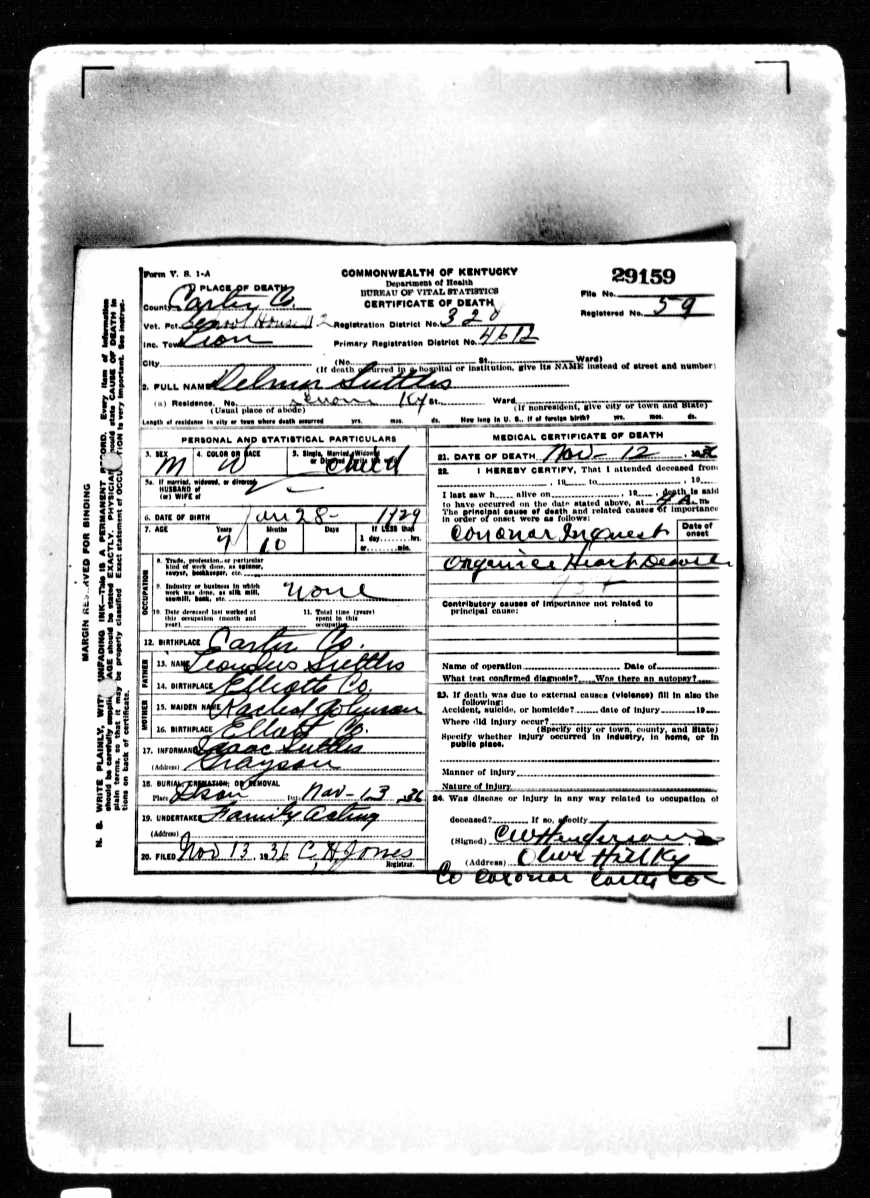 Form V. S. 1-A
COMMONWEALTH OF KENTUCKY
Department of Health
BUREAU OF VITAL STATISTICS
CERTIFICATE OF DEATH
29159
File No.
Registered No. 59
PLACE OF DEATH
County Carter Co.
Vot. Pct. School House 12
Registration District No. 320
Inc. Town
Primary Registration District No. 4612
City (No. St. Ward)
(If death occurred in a hospital or institution, give its NAME instead of street and number)
2. FULL NAME Delmor Suttles
(a) Residence. No. Ky St. Ward
(Usual place of abode) (If nonresident, give city or town and State)
Length of residence in city or town where death occurred yrs. mos. ds. How long in U. S., if of foreign birth? yrs. mos. ds.
PERSONAL AND STATISTICAL PARTICULARS
3. SEX M
4. COLOR OR RACE W
5. Single, Married, Widowed or Divorced Child
5a. If married, widowed, or divorced
HUSBAND of
(or) WIFE of
6. DATE OF BIRTH Jan 28 - 1929
7. AGE Years 7 Months 10 Days If LESS than
1 day........hrs.
or........min.
OCCUPATION
8. Trade, profession, or particular
kind of work done, as spinner,
sawyer, bookkeeper, etc.
9. Industry or business in which
work was done, as silk mill,
sawmill, bank, etc. None
10. Date deceased last worked at
this occupation (month and
year)
11. Total time (years)
spent in this
occupation
12. BIRTHPLACE Carter Co.
FATHER
13. NAME Suttles
14. BIRTHPLACE Elliotte Co.
MOTHER
15. MAIDEN NAME Rachel Johnson
16. BIRTHPLACE Elliott Co.
17. INFORMANT Isaac Suttles
(Address) Grayson
18. BURIAL, CREMATION, OR REMOVAL
Place Nov-13, 36
19. UNDERTAKER Family Acting
(Address)
20. FILED Nov 13, 1936 C. H. Jones
Registrar.
MEDICAL CERTIFICATE OF DEATH
21. DATE OF DEATH Nov - 12 1936
22. I HEREBY CERTIFY, That I attended deceased from
, 19 to , 19
I last saw h alive on , 19 , death is said
to have occurred on the date stated above, at 4 A. m.
The principal cause of death and related causes of importance
in order of onset were as follows:
Date of
onset
Coronar Inquest
Organice Heart Desease
Contributory causes of importance not related to
principal cause:
Name of operation Date of
What test confirmed diagnosis? Was there an autopsy?
23. If death was due to external causes (violence) fill in also the
following:
Accident, suicide, or homicide? date of injury 19
Where did injury occur?
(Specify city or town, county, and State)
Specify whether injury occurred in industry, in home, or in
public place.
Manner of injury
Nature of injury
24. Was disease or injury in any way related to occupation of
deceased? If so, specify
(Signed) C W Henderson
(Address) Olive Hill Ky
Co Coronar Carter Co
MARGIN RESERVED FOR BINDING
N. B. WRITE PLAINLY, WITH UNFADING INK—This IS A PERMANENT RECORD. Every item of information
should be carefully supplied. AGE should be stated EXACTLY. PHYSICIANS should state CAUSE OF DEATH in
plain terms, so that it may be properly classified. Exact statement of OCCUPATION is very important. See instruc-
tions on back of certificate.